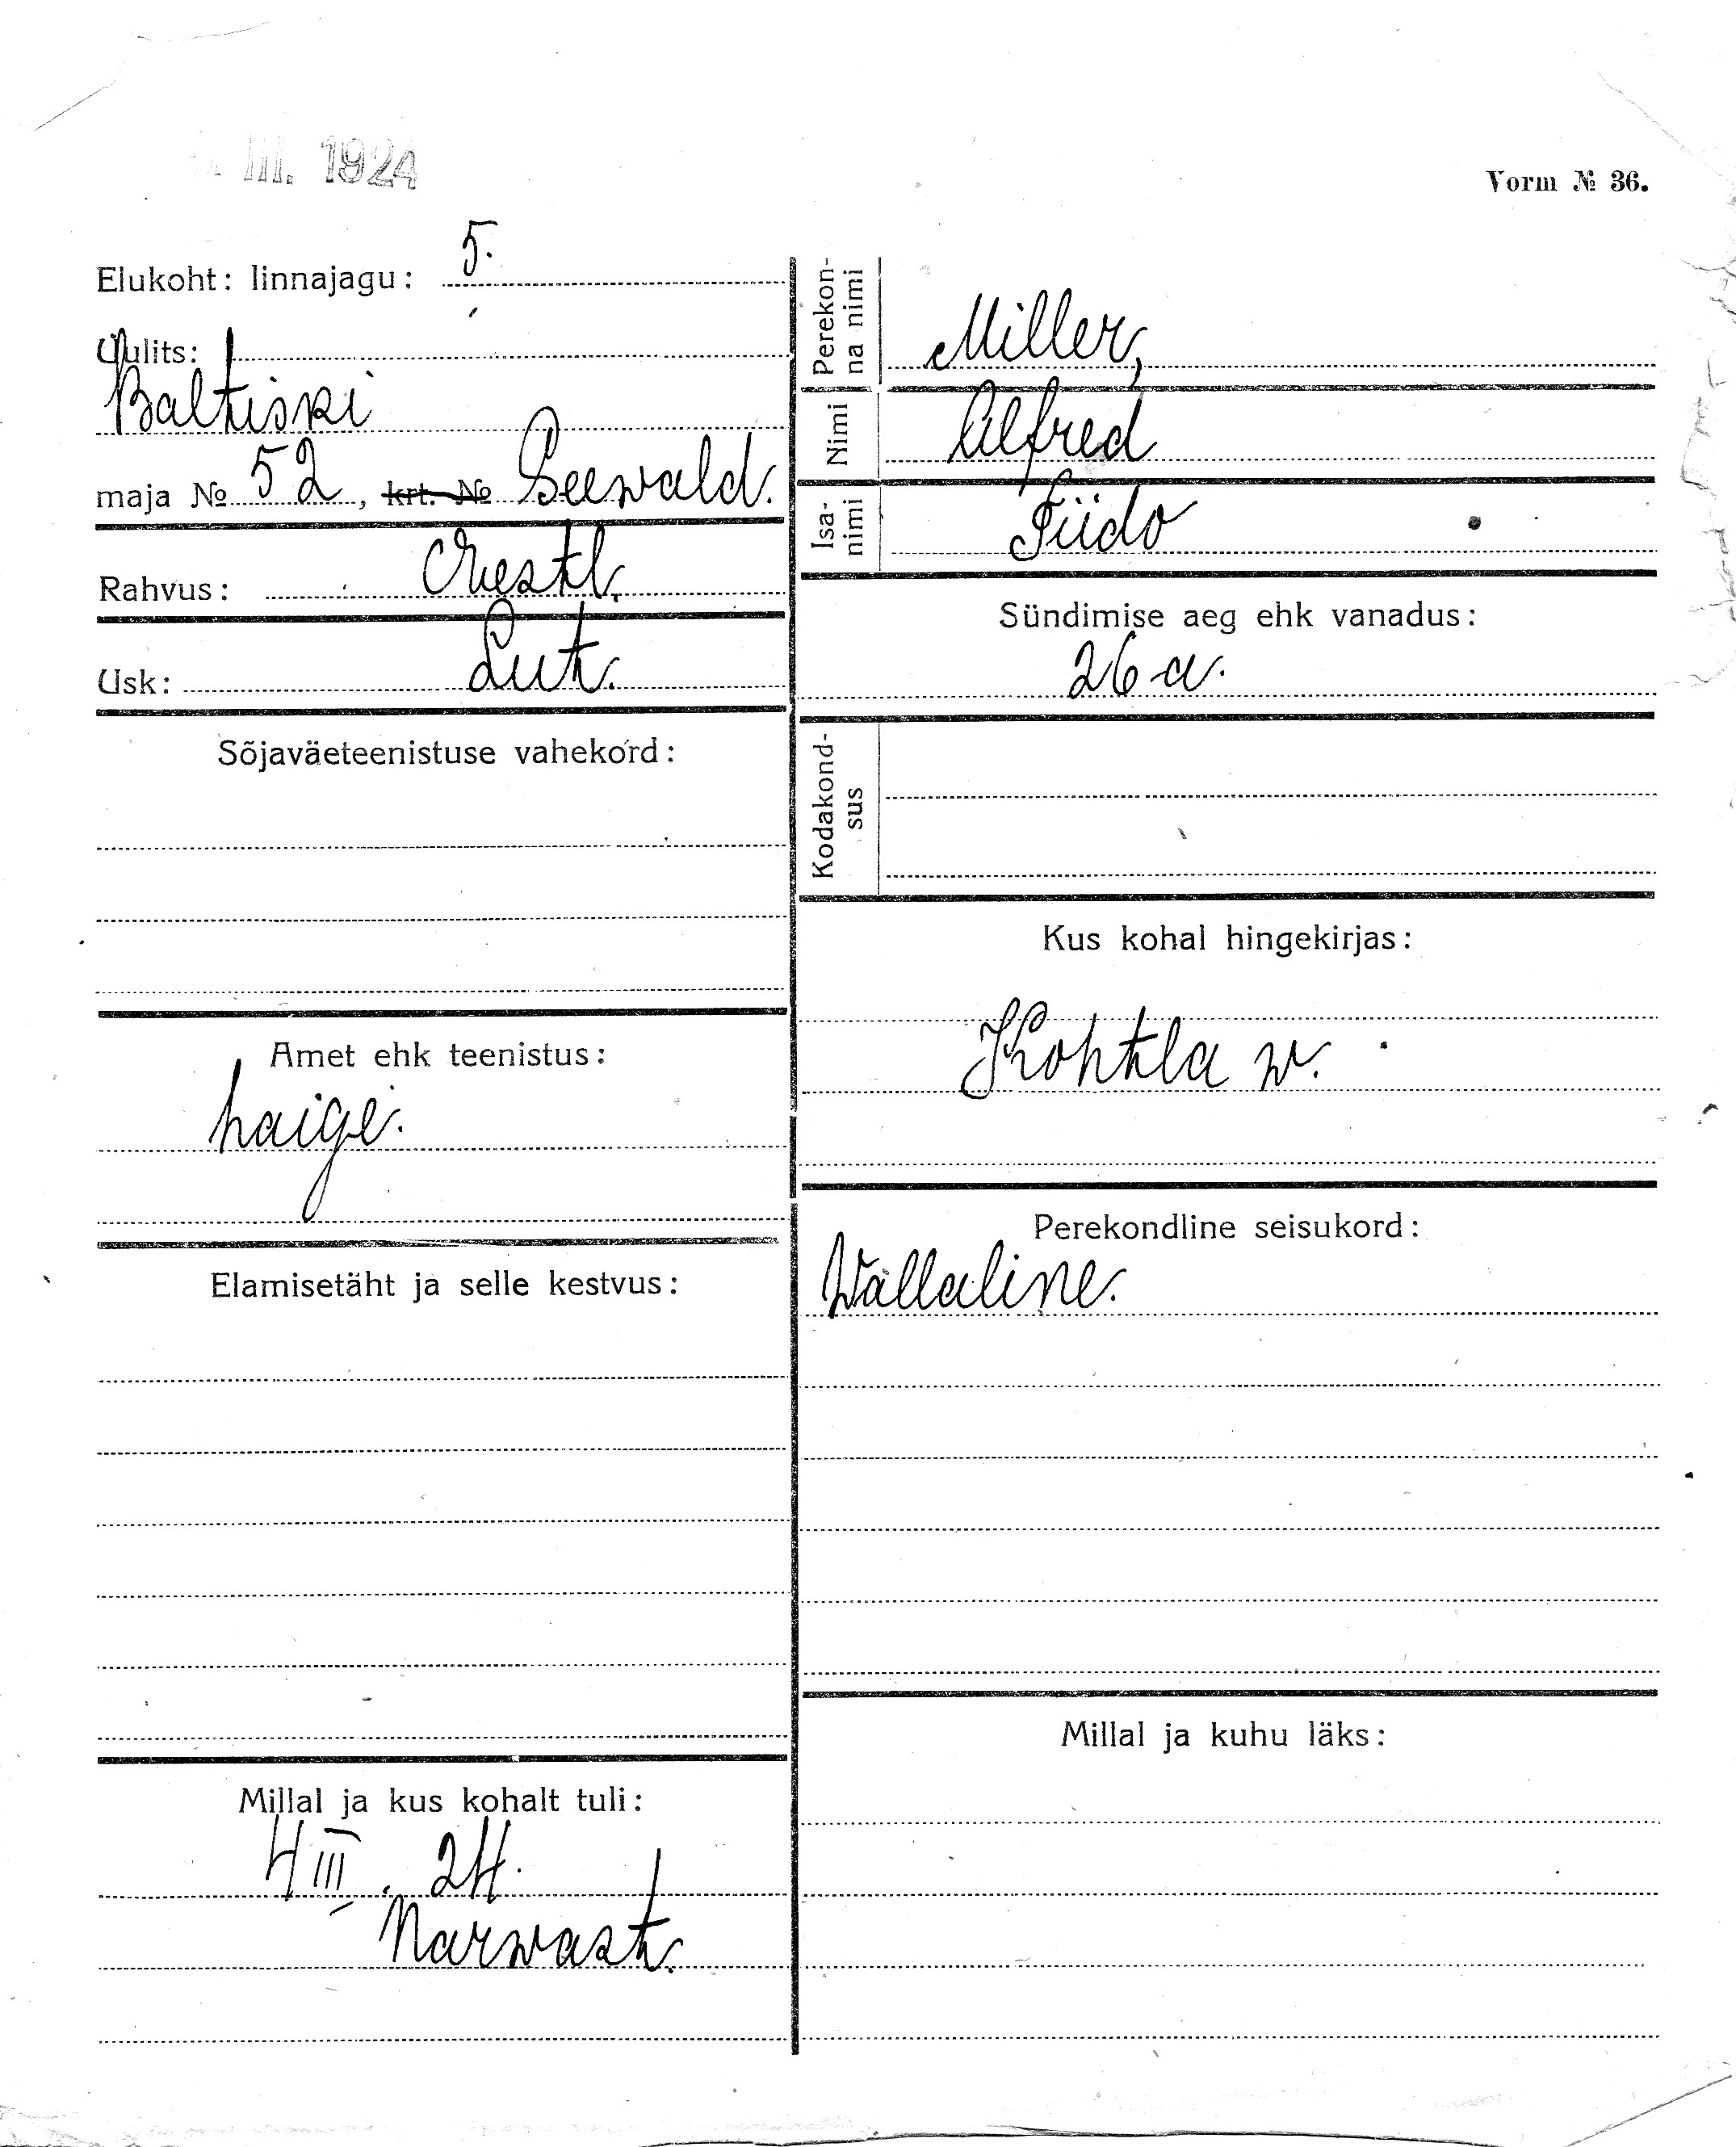 III. 1924
Vorm № 36.
Elukoht: linnajagu: 5.
Uulits:
Baltiski
maja № 52, krt. № Seewald.
Rahvus: Eestl.
Usk: Lut.
Sõjaväeteenistuse vahekord:
Amet ehk teenistus:
haige.
Elamisetäht ja selle kestvus:
Millal ja kus kohalt tuli:
4 III. 24.
Narvast.
Perekonna nimi Miller,
Nimi Alfred
Isanimi Tiido
Sündimise aeg ehk vanadus:
26 a.
Kodakondsus
Kus kohal hingekirjas:
Kohtla w.
Perekondline seisukord:
Wallaline.
Millal ja kuhu läks: